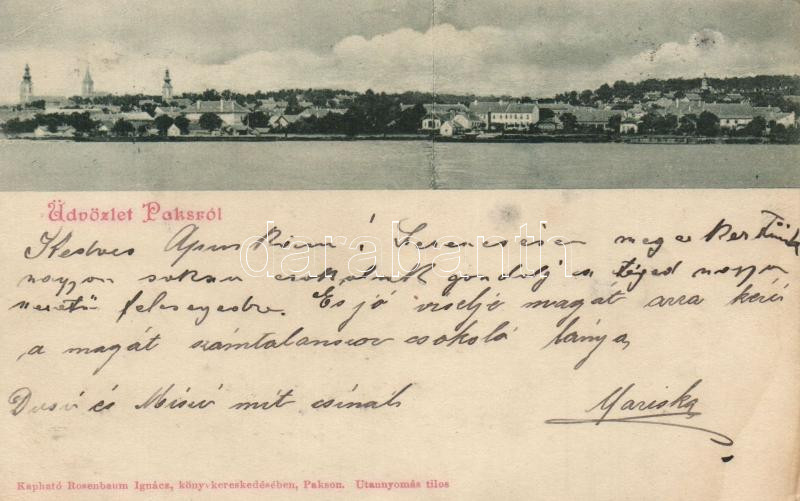 Üdvözlet Paksról
Kedves Apus kám! Szerencsésen meg erkeztünk
nagyon sokan csokolunk gondolj a téged nagyon
szerető feleségedre. És jó viselje magát arra kéri
a magát számtalanszor csokoló lánya
Mariska
Dusi és Misi mit csinál
Kapható Rosenbaum Ignácz, könyvkereskedésében, Pakson. Utannyomás tilos
darabanth